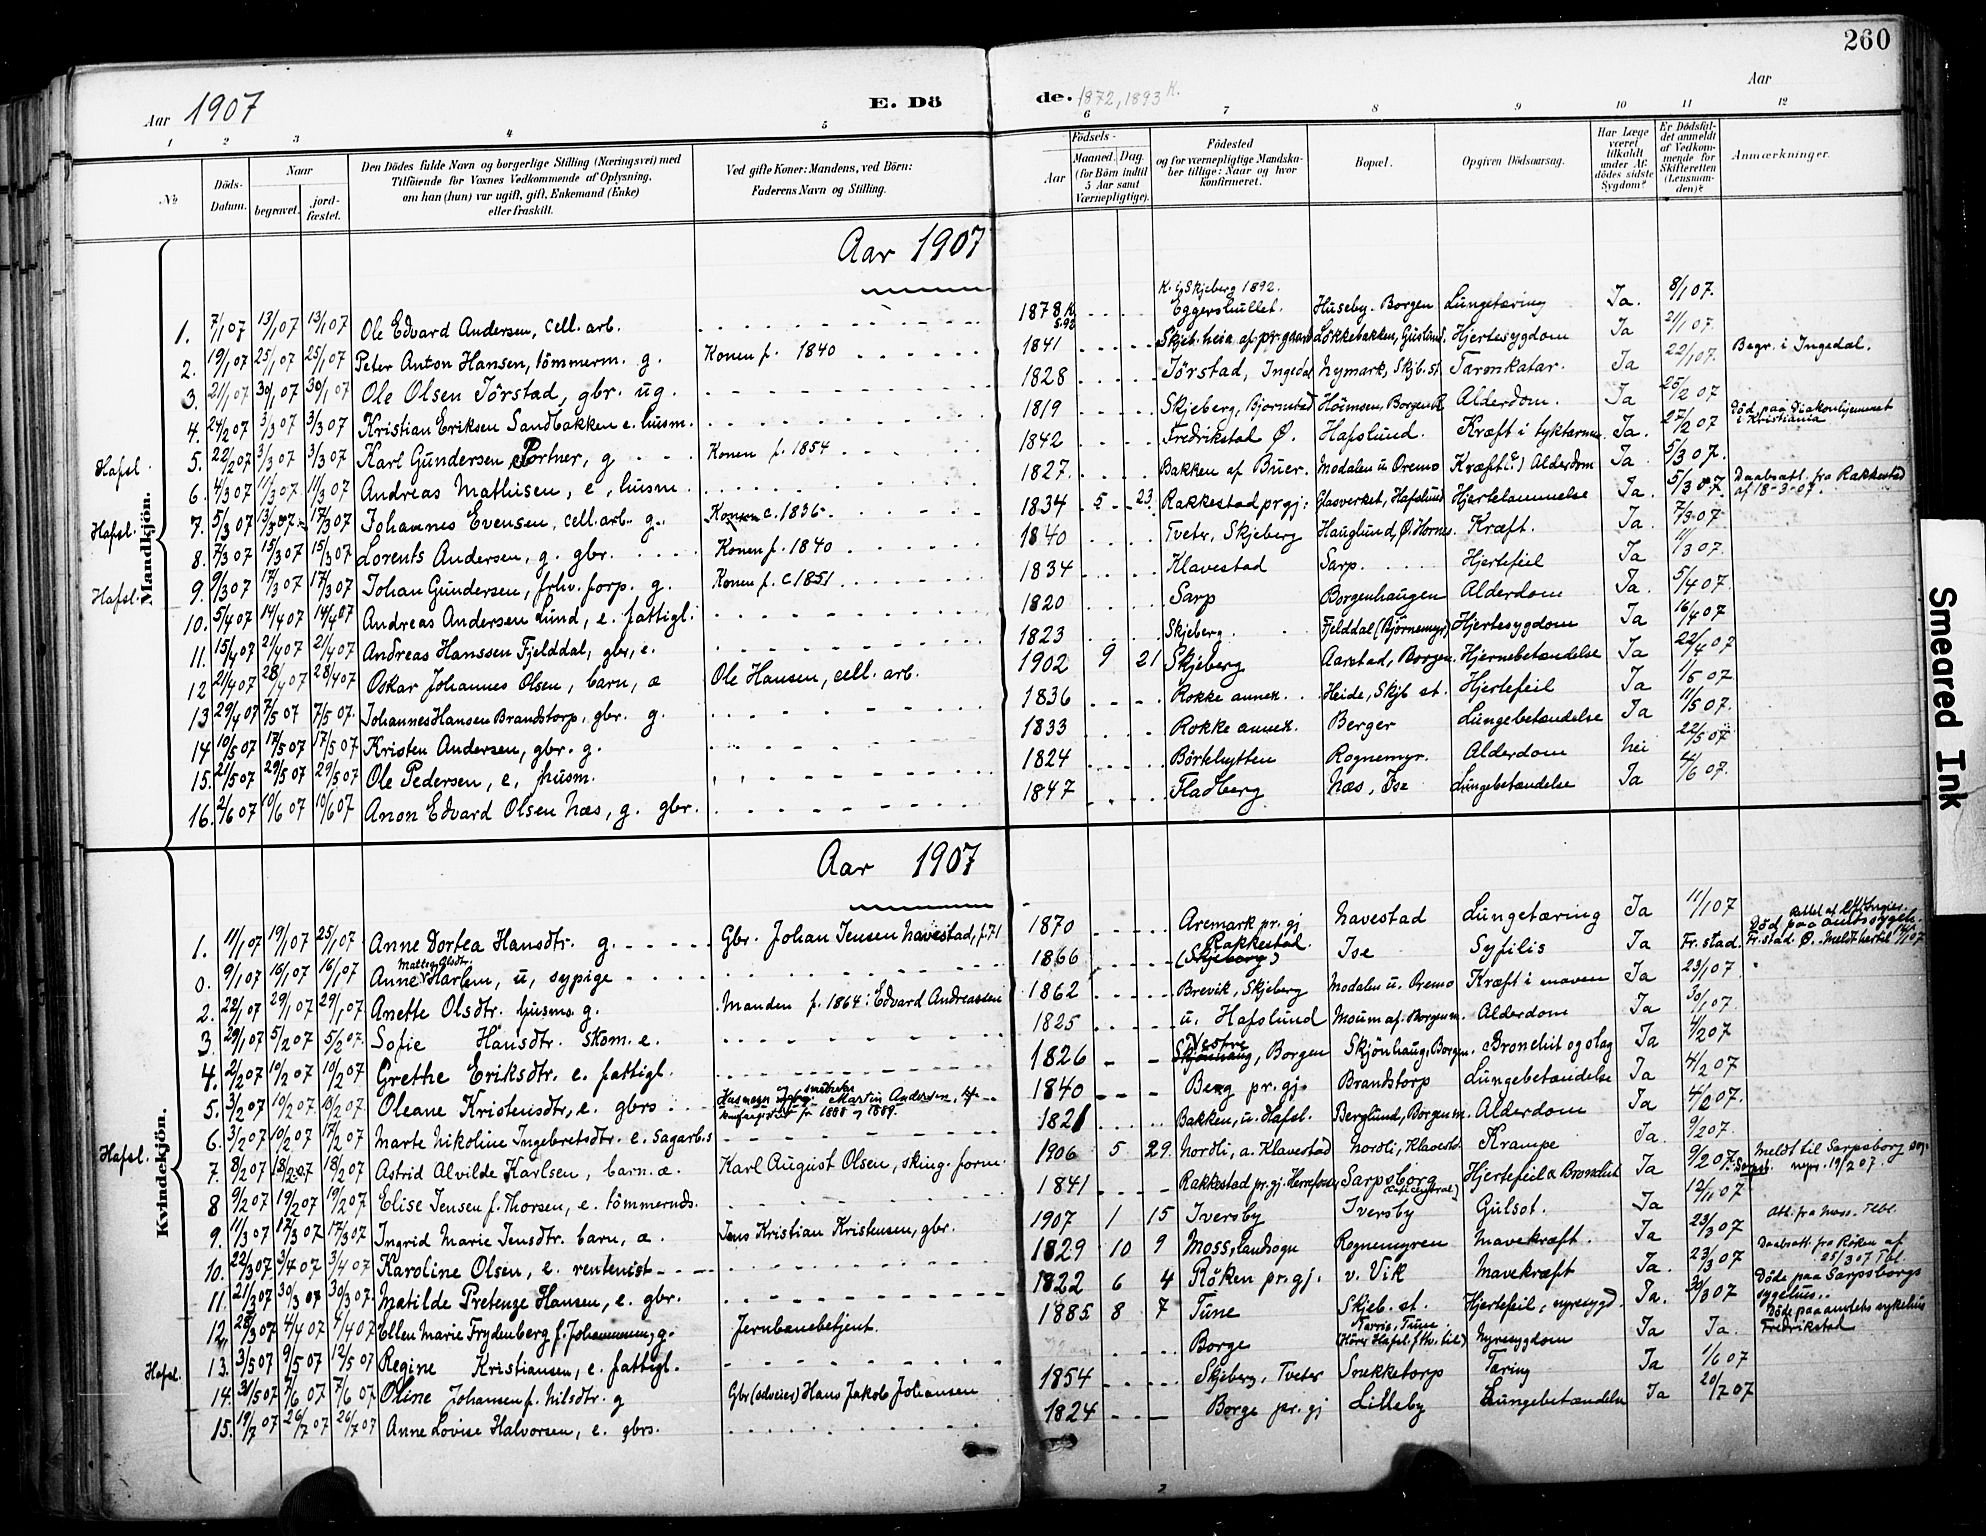 260
Aar 1907
E. Dö
de. 1872, 1893 K.
Aar
1 2 3 4 5 6 7 8 9 10 11 12
No
Döds-Datum.
Naar
begravet.
jord-fæstet.
Den Dödes fulde Navn og borgerlige Stilling (Næringsvei) med
Tilföiende for Voxnes Vedkommende af Oplysning,
om han (hun) var ugift, gift, Enkemand (Enke)
eller fraskilt.
Ved gifte Koner: Mandens, ved Börn:
Faderens Navn og Stilling.
Födsels-
Aar
Maaned. Dag.
(for Börn indtil
5 Aar samt
Værnepligtige).
Födested
og for værnepligtige Mandska-
ber tillige: Naar og hvor
Konfirmeret.
Bopæl.
Opgiven Dödsaarsag.
Har Læge
været
tilkaldt
under Af-
dödes sidste
Sygdom?
Er Dödsfal-
det anmeldt
af Vedkom-
mende for
Skifteretten
(Lensman-
den)?
Anmærkninger.
Mandkjön.
Aar 1907
1. 7/1 07 13/1 07 13/1 07 Ole Edvard Andersen, cell. arb. 1878 K. i Skjeberg 1892. Eggershullet Huseby. Borgen Lungetæring Ja. 8/1 07.
2. 19/1 07 25/1 07 25/1 07 Peter Anton Hansen, tömmerm. g. Konen f. 1840 1841 Skjeb. heia af pr. gaard Lökkebakken, Gusland. Hjertesygdom Ja 21/1 07.
3. 21/1 07 30/1 07 30/1 07 Ole Olsen Törstad, gbr. ug. 1828 Törstad, Ingedal Nymark, Skjb. st. Tarmkatar. Ja 22/1 07. Begr. i Ingedal.
4. 24/2 07 3/3 07 3/3 07 Kristian Eriksen Sandbakken e. husm. 1819 Skjeberg, Bjornstad Alderdom. Ja 25/2 07
Hafsl. 5. 22/2 07 3/3 07 3/3 07 Karl Gundersen Portner, g Konen f. 1854 1842 Fredrikstad Ö. Hafslund. Kræft i tyktarmen Ja. 27/2 07 Död paa Diakonhjemmet i Kristiania
6. 4/3 07 11/3 07 11/3 07 Andreas Mathisen, e, husm 1827. Bakken af Buer. Modalen u Oremo Kræft(?) Alderdom Ja. 5/3 07.
Hafsl. 7. 5/3 07 13/3 07 17/3 07 Johannes Evensen, cell. arb. g. Konen c. 1836 1834 5 23 Rakkestad prgj: Glasverket, Hafslund Hjertelammelse Ja. 5/3 07. Daabsatt. fra Rakkestad af 18-3-07.
8. 7/3 07 15/3 07 15/3 07 Lorents Andersen, g. gbr. Konen f. 1840 1840 Tveter, Skjeberg Hauglund, Ö. Hornes. Kræft. Ja. 7/3 07
Hafsl. 9. 9/3 07 17/3 07 17/3 07 Johan Gundersen, fhv. forp. g. Konen f. c 1851 1834 Klavestad Sarp. Hjertefeil Ja 11/3 07.
10. 5/4 07 14/4 07 14/4 07 Andreas Andersen Lund, e. fattigl. 1820 Sarp Borgenhaugen Alderdom Ja. 5/4 07
11. 15/4 07 21/4 07 21/4 07 Andreas Hanssen Fjelddal, gbr, e. 1823 Skjeberg. Fjelddal (Björnemyr) Hjertesygdom Ja 16/4 07
12 21/4 07 28/4 07 28/4 07 Oskar Johannes Olsen, barn, æ Ole Hansen, cell. arb. 1902 9 21 Skjeberg Aarstad, Borgen. Hjernebetændelse Ja 22/4 07
13 29/4 07 7/5 07 7/5 07. Johannes Hansen Brandstorp, gbr. g. 1836 Rokke annex. Heide, Skjb st. Hjertefeil Ja 1/5 07
14 10/5 07 17/5 07 17/5 07 Kristen Andersen, gbr. g. 1833 Rokke annex. Berger Lungebetændelse Ja 11/5 07.
15. 21/5 07 29/5 07 29/5 07 Ole Pedersen, e, husm. 1824 Börkhytten Rognemyr. Alderdom Nei 22/5 07
16. 2/6 07 10/6 07 10/6 07 Anon Edvard Olsen Næs, g. gbr. 1847 Fladberg Næs, Ise Lungebetændelse Ja 4/6 07.
Kvindekjön.
Aar 1907
1. 11/1 07 19/1 07 25/1 07 Anne Dortea Hansdtr. g. Gbr. Johan Jensen Navestad, f. 71 1870 Aremark pr. gj Navestad Lungetæring Ja 11/1 07
0. 9/1 07 16/1 07 16/1 07 Anne Mattea Olsdtr. Harlem, u, sypige 1866 Rakkestad. (Skjeberg) Ise Syfilis Ja Fr. stad. Död paa amtssygeh. Fr. stad Ö. Meldt hertil 14/1 07
2. 22/1 07 29/1 07 29/1 07 Anette Olsdtr. husms g. Manden f. 1864: Edvard Andreassen 1862 Brevik, Skjeberg Modalen u. Oremo Kræft i maven Ja 23/1 07.
3. 29/1 07 5/2 07 5/2 07. Sofie Hansdtr. Skom. e. 1825 u. Hafslund Moum af. Borgen m. Alderdom Ja 30/1 07.
4. 2/2 07 10/2 07 10/2 07 Grethe Eriksdtr. e. fattigl. 1826 Vestre Skjönhaug, Borgen Skjönhaug, Borgen. Bronchit og slag Ja 4/2 07
5. 3/2 07 10/2 07 13/2 07 Oleane Kristensdtr, e. gbrs Husmagn og smeden Martin Andersen 1840 Berg pr. gj. Brandstorp Lungebetændelse Ja 4/2 07
6. 3/2 07 10/2 07 17/2 07 Marte Nikoline Ingebretsdtr. e. Sagarb.s 1821 Bakken, u. Hafsl. Berglund, Borgen m. Alderdom Ja 4/2 07.
Hafsl. 7. 8/2 07 18/2 07 18/2 07 Astrid Alvilde Karlsen, barn. æ. Karl August Olsen, sking. form. 1906 5 29. Nordli, a. Klavestad Nordli, Klavest. Krampe Ja. 9/2 07.
8 9/2 07 19/2 07 19/2 07 Elise Jensen f. Thorsen, e. tömmermds. 1841 Rakkestad pr. gj. Sarpsborg Hjertefeil & Bronchit Ja 9/2 07. Meldt til Sarpsborg 19/2 07.
9. 11/3 07 17/3 07 17/3 07 Ingrid Marie Jensdtr. barn, æ. Jens Kristian Kristensen, gbr. 1907 1 15 Iversby Iversby Gulsot. Ja 12/1 07
10. 22/3 07 3/4 07 3/4 07 Karoline Olsen, e. rentenist 1829 10 9 Moss, landsogn Rognemyren Mavekræft. Ja 23/3 07 Att. fra Moss. Tlbl.
11. 21/3 07 30/3 07 30/3 07. Matilde Pretenze Hansen, e. gbr. 1822 6 4 Röken pr. gj. v. Vik Mavekræft Ja. 23/3 07 Daabsatt. fra Röken af 25/3 07 Tbl
12. 28/3 07 4/4 07 4/4 07 Ellen Marie Frydenberg f. Johannesen, g. Jernbanebetjent. 1885 8 7 Tune Skjeb. st. Hjertefeil, nyresygd. Ja. 30/3 07 Döde paa Sarpsborgs sygehus..
Hafsl. 13. 3/5 07 9/5 07 12/5 07 Regine Kristiansen, e. fattigl. Borge Tune. (Hörer Hafsl. f. thv. til) Nyresygdom Ja Ja. Döde paa amtets sykehus Fredrikstad
14. 31/5 07 7/6 07 7/6 07 Oline Johansen f. Nilsdtr. g Gbr (odveier) Hans Jakob Johansen 1854 Skjeberg, Tveter Snekketorp Tæring Ja 1/6 07
15. 19/7 07 26/7 07 26/7 07 Anne Lovise Halvorsen, e. gbrs. 1824 Borge pr. gj Lilleby Lungebetændelse Ja 20/7 07
Smeared Ink